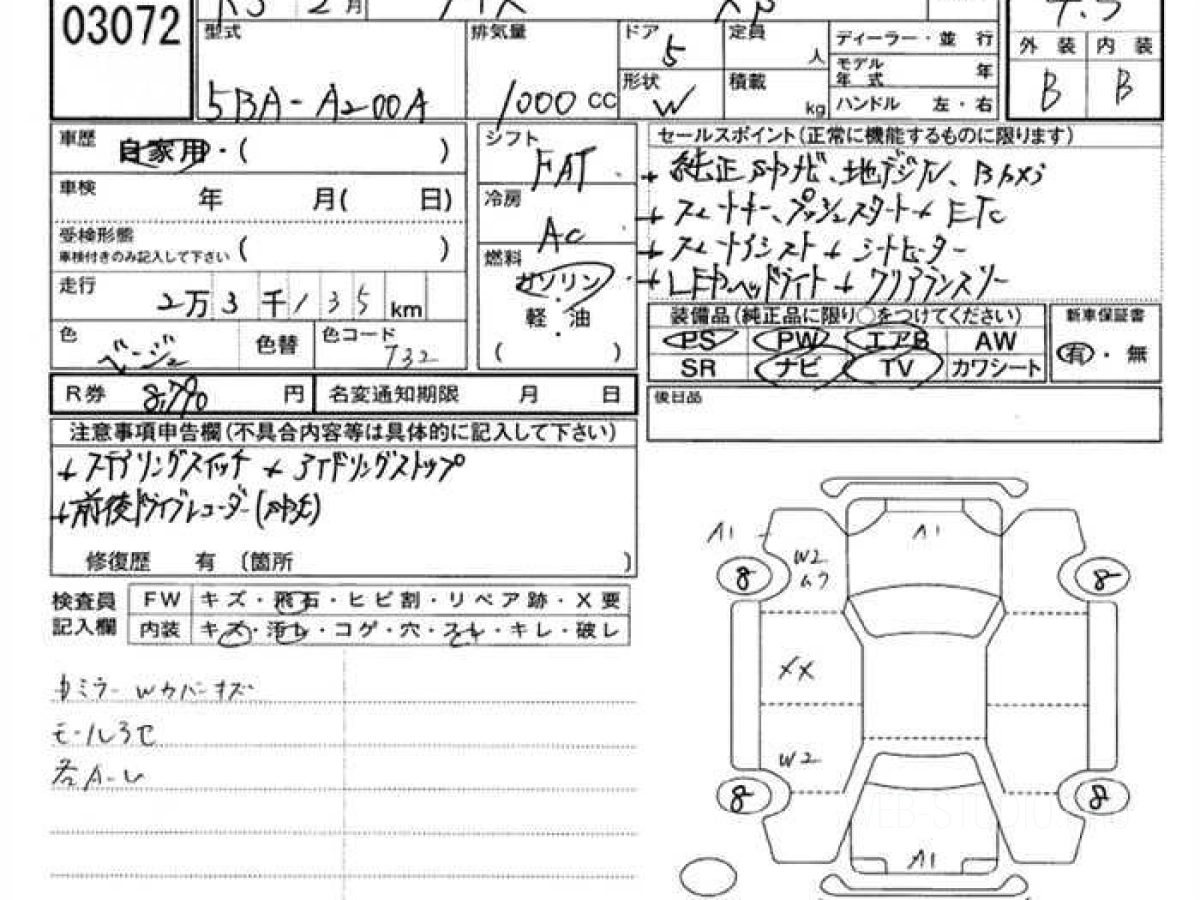 03072
R3 2月
型式 5BA-A200A
排気量 1000 cc
ドア 5
定員 人
形状 W
積載 kg
ディーラー・並 行
モデル年式 年
ハンドル 左・右
外 装 内 装
B B
車歴 自家用・( )
車検 年 月( 日)
受検形態
車検付きのみ記入して下さい ( )
走行 2万3千135km
色 ベージュ 色替 色コード T32
R券 8,790 円 名変通知期限 月 日
シフト FAT
冷房 AC
燃料 ガソリン・軽・油
( )
セールスポイント(正常に機能するものに限ります)
地デジTV、
スマートキー、プッシュスタート ETC
スマートアシスト シートヒーター
LEDヘッドライト クリアランスソナー
装備品(純正品に限り○をつけてください)
PS PW エアB AW
SR ナビ TV カワシート
新車保証書
有・無
後日品
注意事項申告欄(不具合内容等は具体的に記入して下さい)
ステアリングスイッチ アイドリングストップ
前後ドライブレコーダー
修復歴 有 〔箇所 〕
検査員記入欄
FW キズ・飛石・ヒビ割・リペア跡・X要
内装 キズ・汚レ・コゲ・穴・スレ・キレ・破レ
ミラーWカバーキズ
モール
各A-U
A1 A1
W2
8 8
XX
W2
8 8
A1
WEB-STUDIO